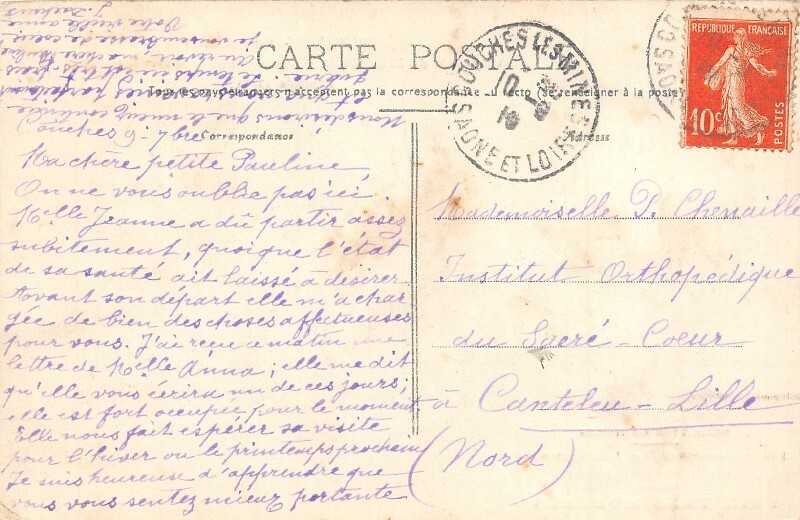 CARTE POSTALE
Tous les pays étrangers n'acceptent pas la correspondance au recto (Se renseigner à la poste)
Correspondance
Adresse
RÉPUBLIQUE FRANÇAISE
10c
POSTES
OUCHES LES MINES
SAONE ET LOIRE
10
Couches 6-7bre
Ma chère petite Pauline,
On ne vous oublie pas ici.
Melle Jeanne a dû partir assez
subitement, quoique l'état
de sa santé ait laissé à désirer.
Avant son départ elle m'a char
gée de bien des choses affectueuses
pour vous. J'ai reçu ce matin une
lettre de Melle Anna; elle me dit
qu'elle vous écrira un de ces jours;
elle est fort occupée pour le moment.
Elle nous fait espérer sa visite
pour l'hiver ou le printemps prochain
Je suis heureuse d'apprendre que
vous vous sentez mieux portante
Nous desirons que le mieux continue
Au revoir, ma chère Pauline
je vous embrasse de coeur
Votre vieille amie
Mademoiselle P. Chenaille
Institut Orthopédique
du Sacré-Coeur
à Canteleu-Lille
(Nord)